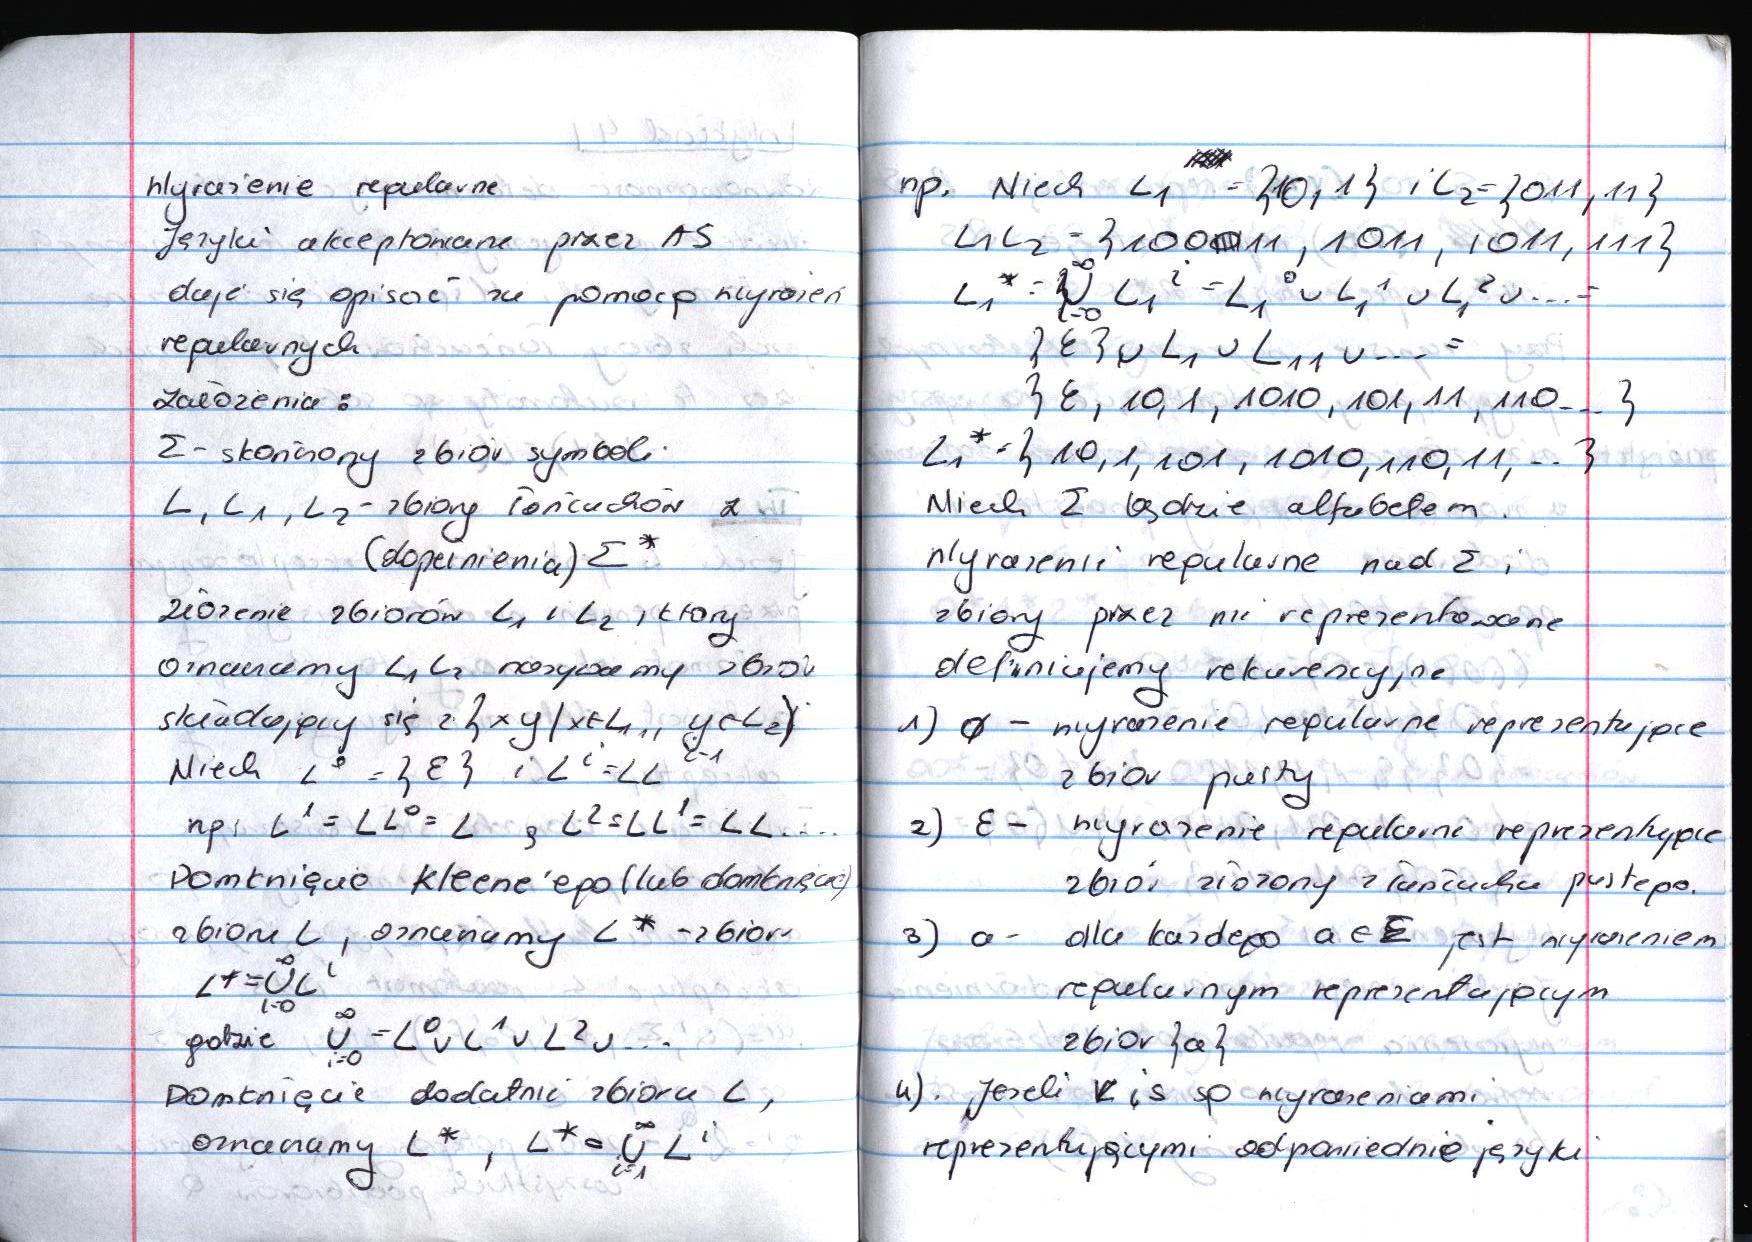 Wyrażenie regularne
Języki akceptowane przez AS
daje się opisać za pomocą wyrażeń
regularnych
Założenia:
Σ - skończony zbiór symboli
L, L₁, L₂ - zbiory łańcuchów z
(dopełnienia) Σ*
Złożenie zbiorów L₁ i L₂, który
oznaczamy L₁L₂ nazywamy zbiór
składający się z {xy/x∈L₁, y∈L₂}
Niech L⁰ = {ε} i Lⁱ = LLⁱ⁻¹
np. L¹ = LL⁰ = L , L² = LL¹ = LL....
Domknięcie Kleene'ego (lub domknięcie)
zbioru L, oznaczamy L* - zbiór
L* = ∞∪i=0 Lⁱ
gdzie ∞∪i=0 = L⁰∪L¹∪L²∪...
Domknięcie dodatnie zbioru L,
oznaczamy L*, L* = ∞∪i=1 Lⁱ
np. Niech L₁ = {10, 1} i L₂ = {011, 11}
L₁L₂ = {10011, 1011, 1011, 111}
L₁* = ∞∪i=0 L₁ⁱ = L₁⁰∪L₁¹∪L₁²∪...=
{ε}∪L₁∪L₁₁∪.... =
{ε, 10, 1, 1010, 101, 11, 110...}
L₁* = {10, 1, 101, 1010, 110, 11, ...}
Niech Σ będzie alfabetem.
Wyrażenie regularne nad Σ i
zbiory przez nie reprezentowane
definiujemy rekurencyjne
1) ø - wyrażenie regularne reprezentujące
zbiór pusty
2) ε - wyrażenie regularne reprezentujące
zbiór złożony z łańcucha pustego.
3) a - dla każdego a∈Σ jest wyrażeniem
regularnym reprezentującym
zbiór {a}
4). Jeżeli r i s są wyrażeniami
reprezentującymi odpowiednie języki